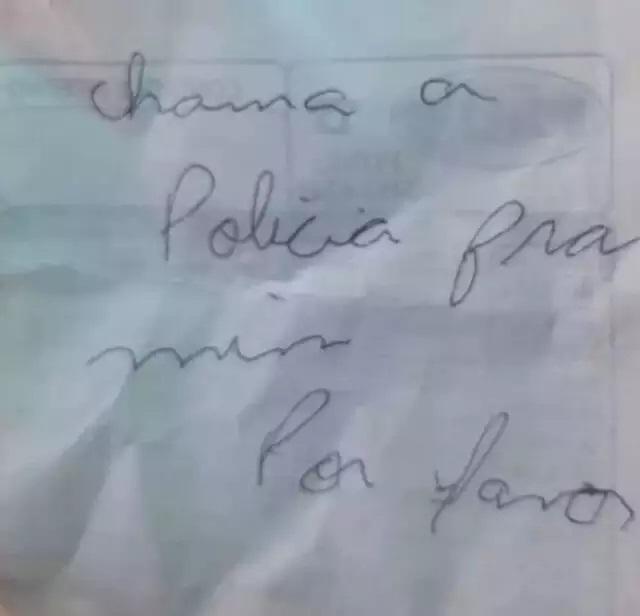 chama a
Policia pra
mim
Por favor